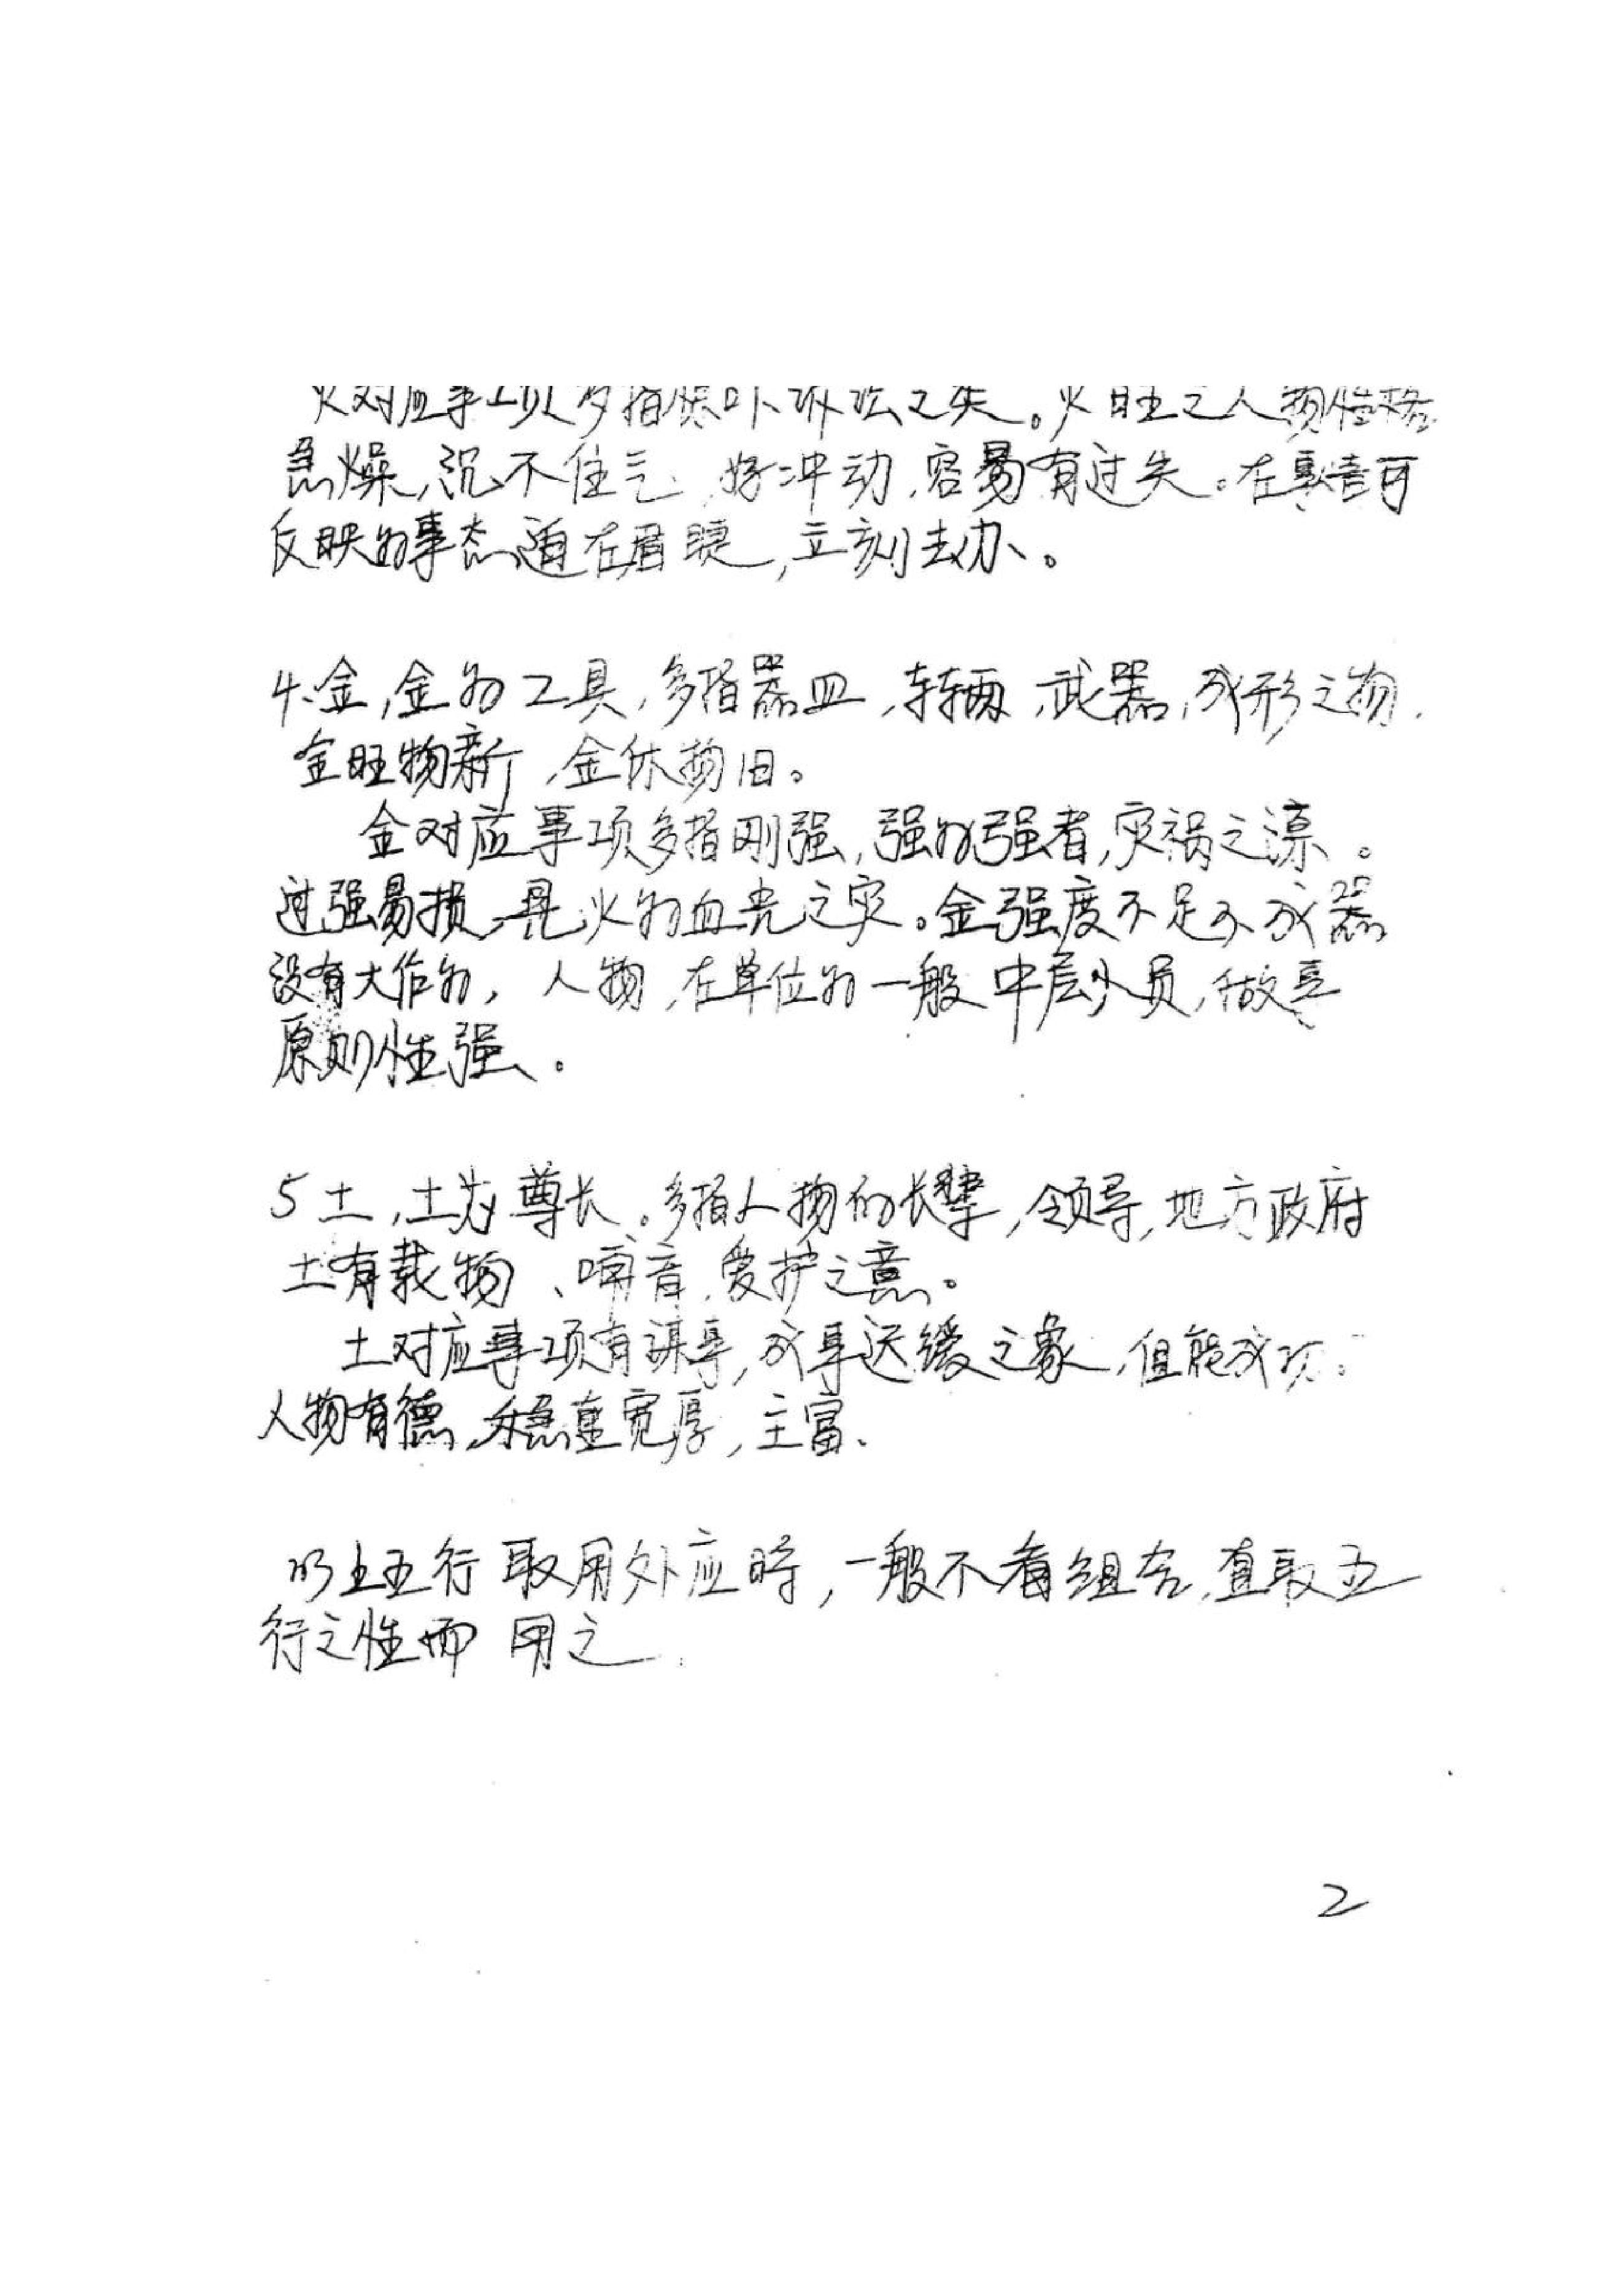 火对应事项多指惊吓诉讼之失。火旺之人物性格
急燥,沉不住气,好冲动,容易有过失。在事情可
反映为事态迫在眉睫,立刻去办、。
4、金,金为工具,多指器皿,车辆,武器,成形之物.
金旺物新,金休物旧。
金对应事项多指刚强,强为强者,灾祸之源。
过强易损,见火为血光之灾。金强度不足不成器
没有大作为,人物,在单位为一般中层少员,做事
原则性强。
5 土,土为尊长。多指人物的长辈,领导,地方政府
土有载物、哺育,爱护之意。
土对应事项有谋事,成事迟缓之象,但能成功.
人物有德,稳重宽厚,主富.
以上五行取用外应时,一般不看组合,直取五
行之性而用之
2